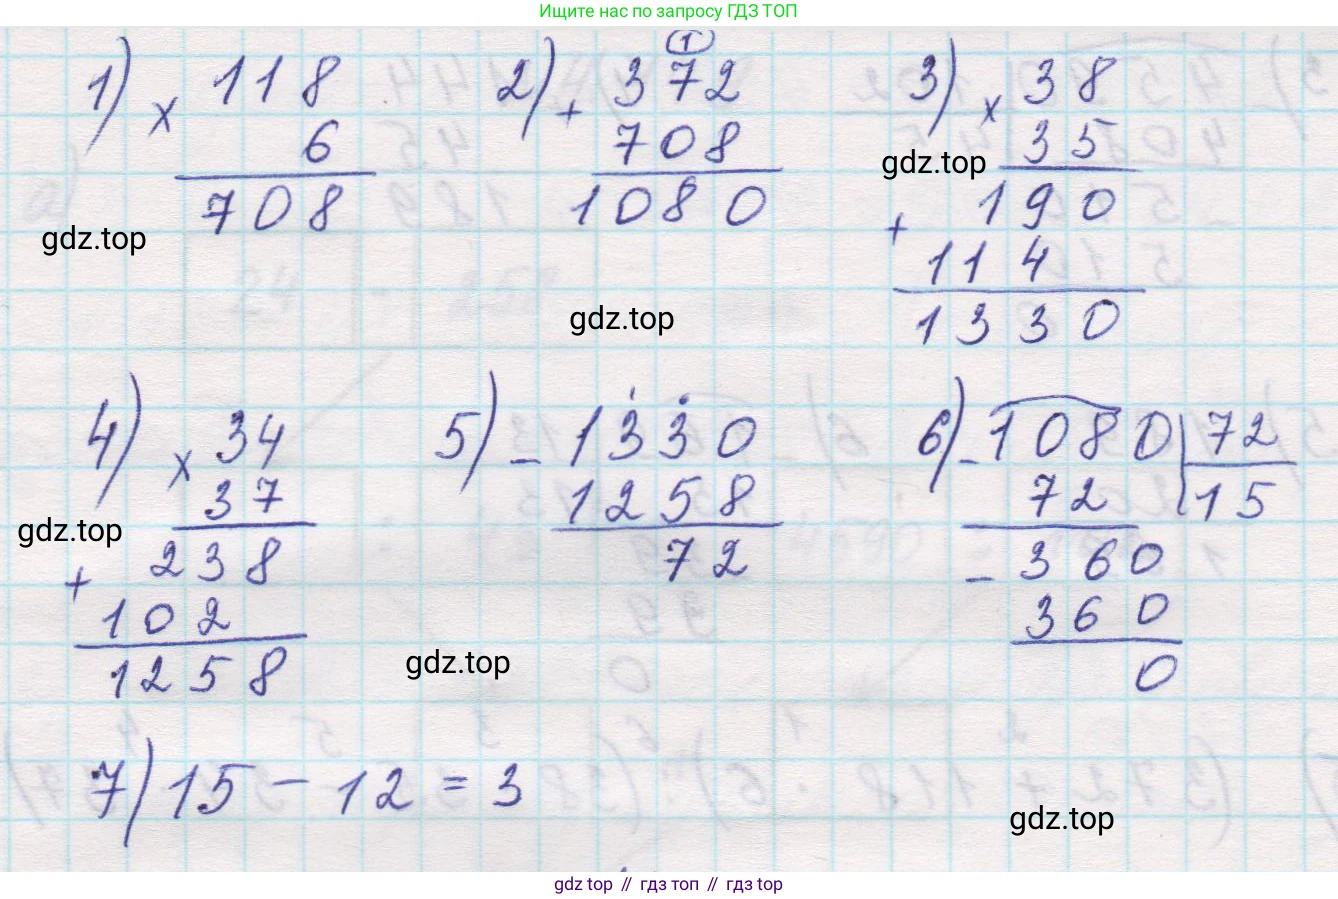 Ищите нас по запросу ГДЗ ТОП
1) × 118
6
708
2) + 372
1
708
1080
3) × 38
35
190
+ 114
1330
gdz.top
gdz.top
gdz.top
4) × 34
37
238
+ 102
1258
5) - 1330
1258
72
6) - 1080 | 72
72 15
- 360
360
0
gdz.top
gdz.top
7) 15 - 12 = 3
gdz.top
gdz top // гдз топ // гдз top